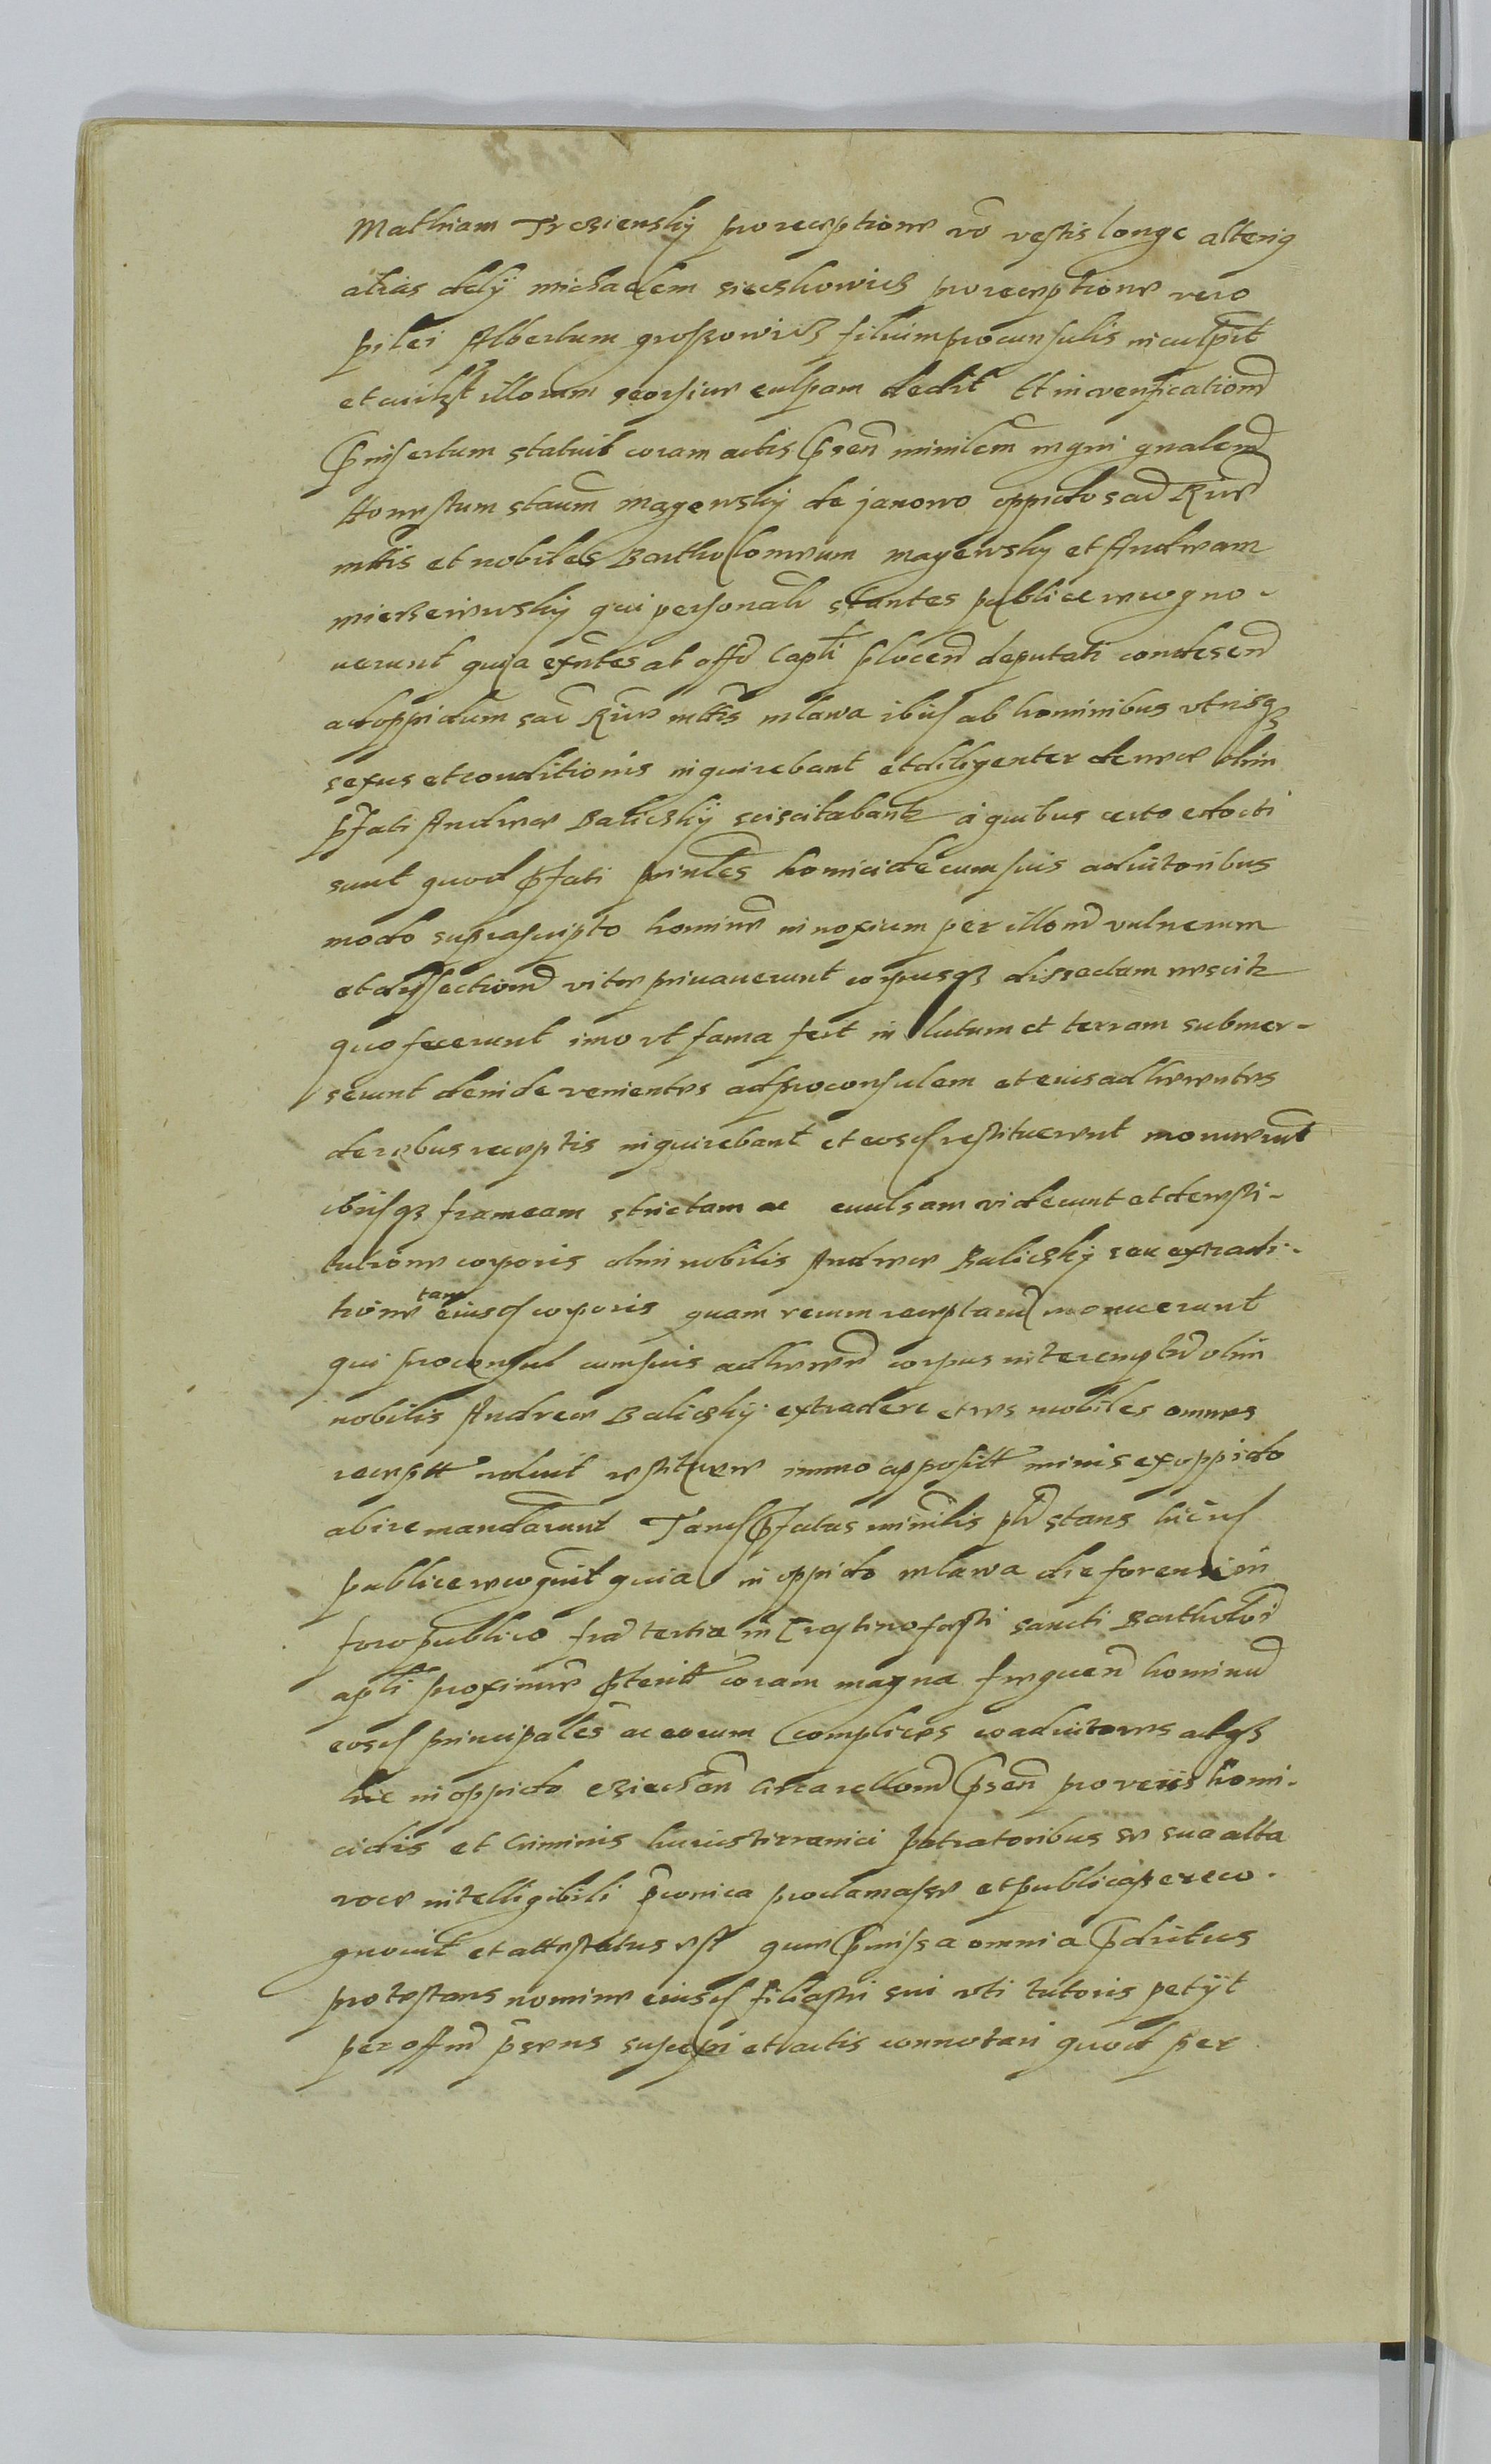 Mathiam Trczienskÿ pro receptione vo vestis longe alterig
alias delÿ michaelem sieczkowicz pro receptione vero
pilei Albertum grossowicz filium proconsulis inculpit
et cuilzt illorum seorsive culpam dedit Et in verificationem
p̄missorum statuit coram actis p̄sen ministlem mgni gnalem
Honestum staum mayewskÿ de janowo oppido sac Rie
mttis et nobiles Bartholomeum mayewskÿ et Andream
mierzeiewskÿ qui personalr stantes publice recogno-
uerunt quia exntes ab offo Capli plocen deputati condescen
ad oppidum sac Rie mttis mlawa ibiq ab hominibus vtriusqz
sexus et conditionis inquirebant et diligenter de nece olim
p̄fati Andreae Balicskÿ sciscitabantr a quibus certo edocti
sunt quod p̄fati prinles homicide cum suis adiutoribus
modo suprascripto homine innoxium per illom vulnerum
et dissectionem vite priuauerunt corpusqz dissectam nescitr
quo fecerunt imo vt fama fert in lutum et terram submer-
serunt deinde venientes ad proconsulem et eius adherentes
de rebus receptis inquirebant et eosd restituerent monuerunt
ibiqz frameam strictam ac euulsam viderunt et de resti-
tutione corporis olim nobilis Andreae Balicskÿ seu extradi-
tione tam eiusd corporis quam rerum receptaru monuerunt
qui proconsul cum suis adheren corpus interempti olim
nobilis Andreae Balicskÿ extradere et res mobiles omnes
recept noluit restituere immo appositt minis ex oppido
abire mandarunt Tand p̄fatus ministlis plr stans hicq
publice recognit quia in oppido mlawa die forensi in
foro publico fria tertia in Crastino festi sancti Bartholoi
apli proxime p̄terit coram magna frequen hominu
eosd principales ac eorum complices coadiutores atqz
hic in oppido cziechan Circa rellom p̄sen pro veris homi-
cidis et Criminis huius tirranici patratoribus se sua alta
voce intelligibili p̄conica proclamasse et publicasse reco-
gnouit et attestatus est que p̄missa omnia p̄dictus
protestans nomine eiusd filiastri sui vti tutoris petÿt
per offm p̄sens suscepi et actis connotari quod per